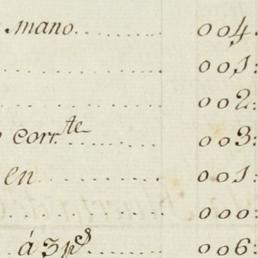 mano. 004.
001:
002:
corr.te 003:
en 001:
000:
á 3ps 006: